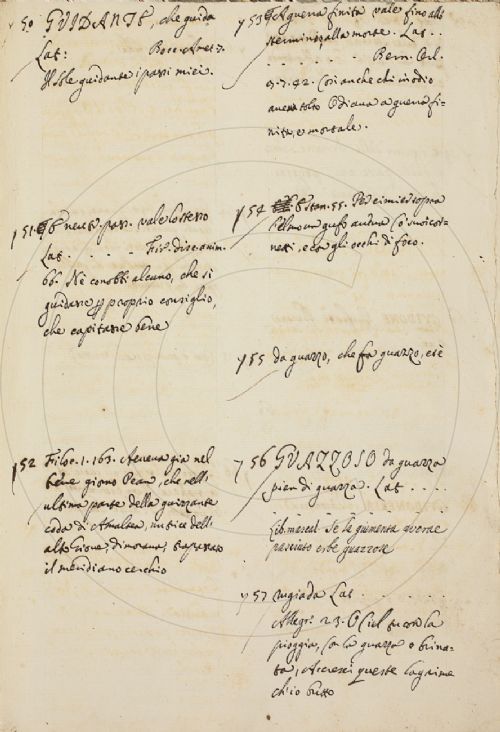 50 GUIDANTE, che guida
Lat: Bocc. Amet 7.
Il Sole guidante i passi miei.
51 E neut. pass. vale lo stesso
Lat. . . . . Fir. disc. anim.
66. Nè conobbi alcuno, che si
guidasse proprio consiglio,
che capitasse bene
52 Filoc. 1. 163. Aveva già nel
giorno Pean, che nell'
ultima parte della guizzante
coda di Amaltea, nutrice dell'
alto Giove, dimorava, trapassato
il meridiano cerchio
53 A guerra finita vale fino allo
sterminio, alla morte. Lat. . .
. . . . . . Bern. Orl.
2. 7. 42. Così anche chi in odio
avea tolto Odiana a guerra fi-
nita, e mortale.
54 E Stan. 55. Per cimier sopra
l'elmo un gufo aveva Co' suoi cor-
netti, e con gli occhi di foco.
55 da guazzo, che fa guazzo, e
56 GUAZZOSO da guazza
pien di guazza. Lat. . . . .
Lib. mascal. Se la giumenta averae
pasciuto erbe guazzose
57 rugiada Lat. . . . . . .
Allegr. 23. O Ciel la
pioggia, con la guazza o brina-
ta, Accresci queste lagrime
ch'io butto